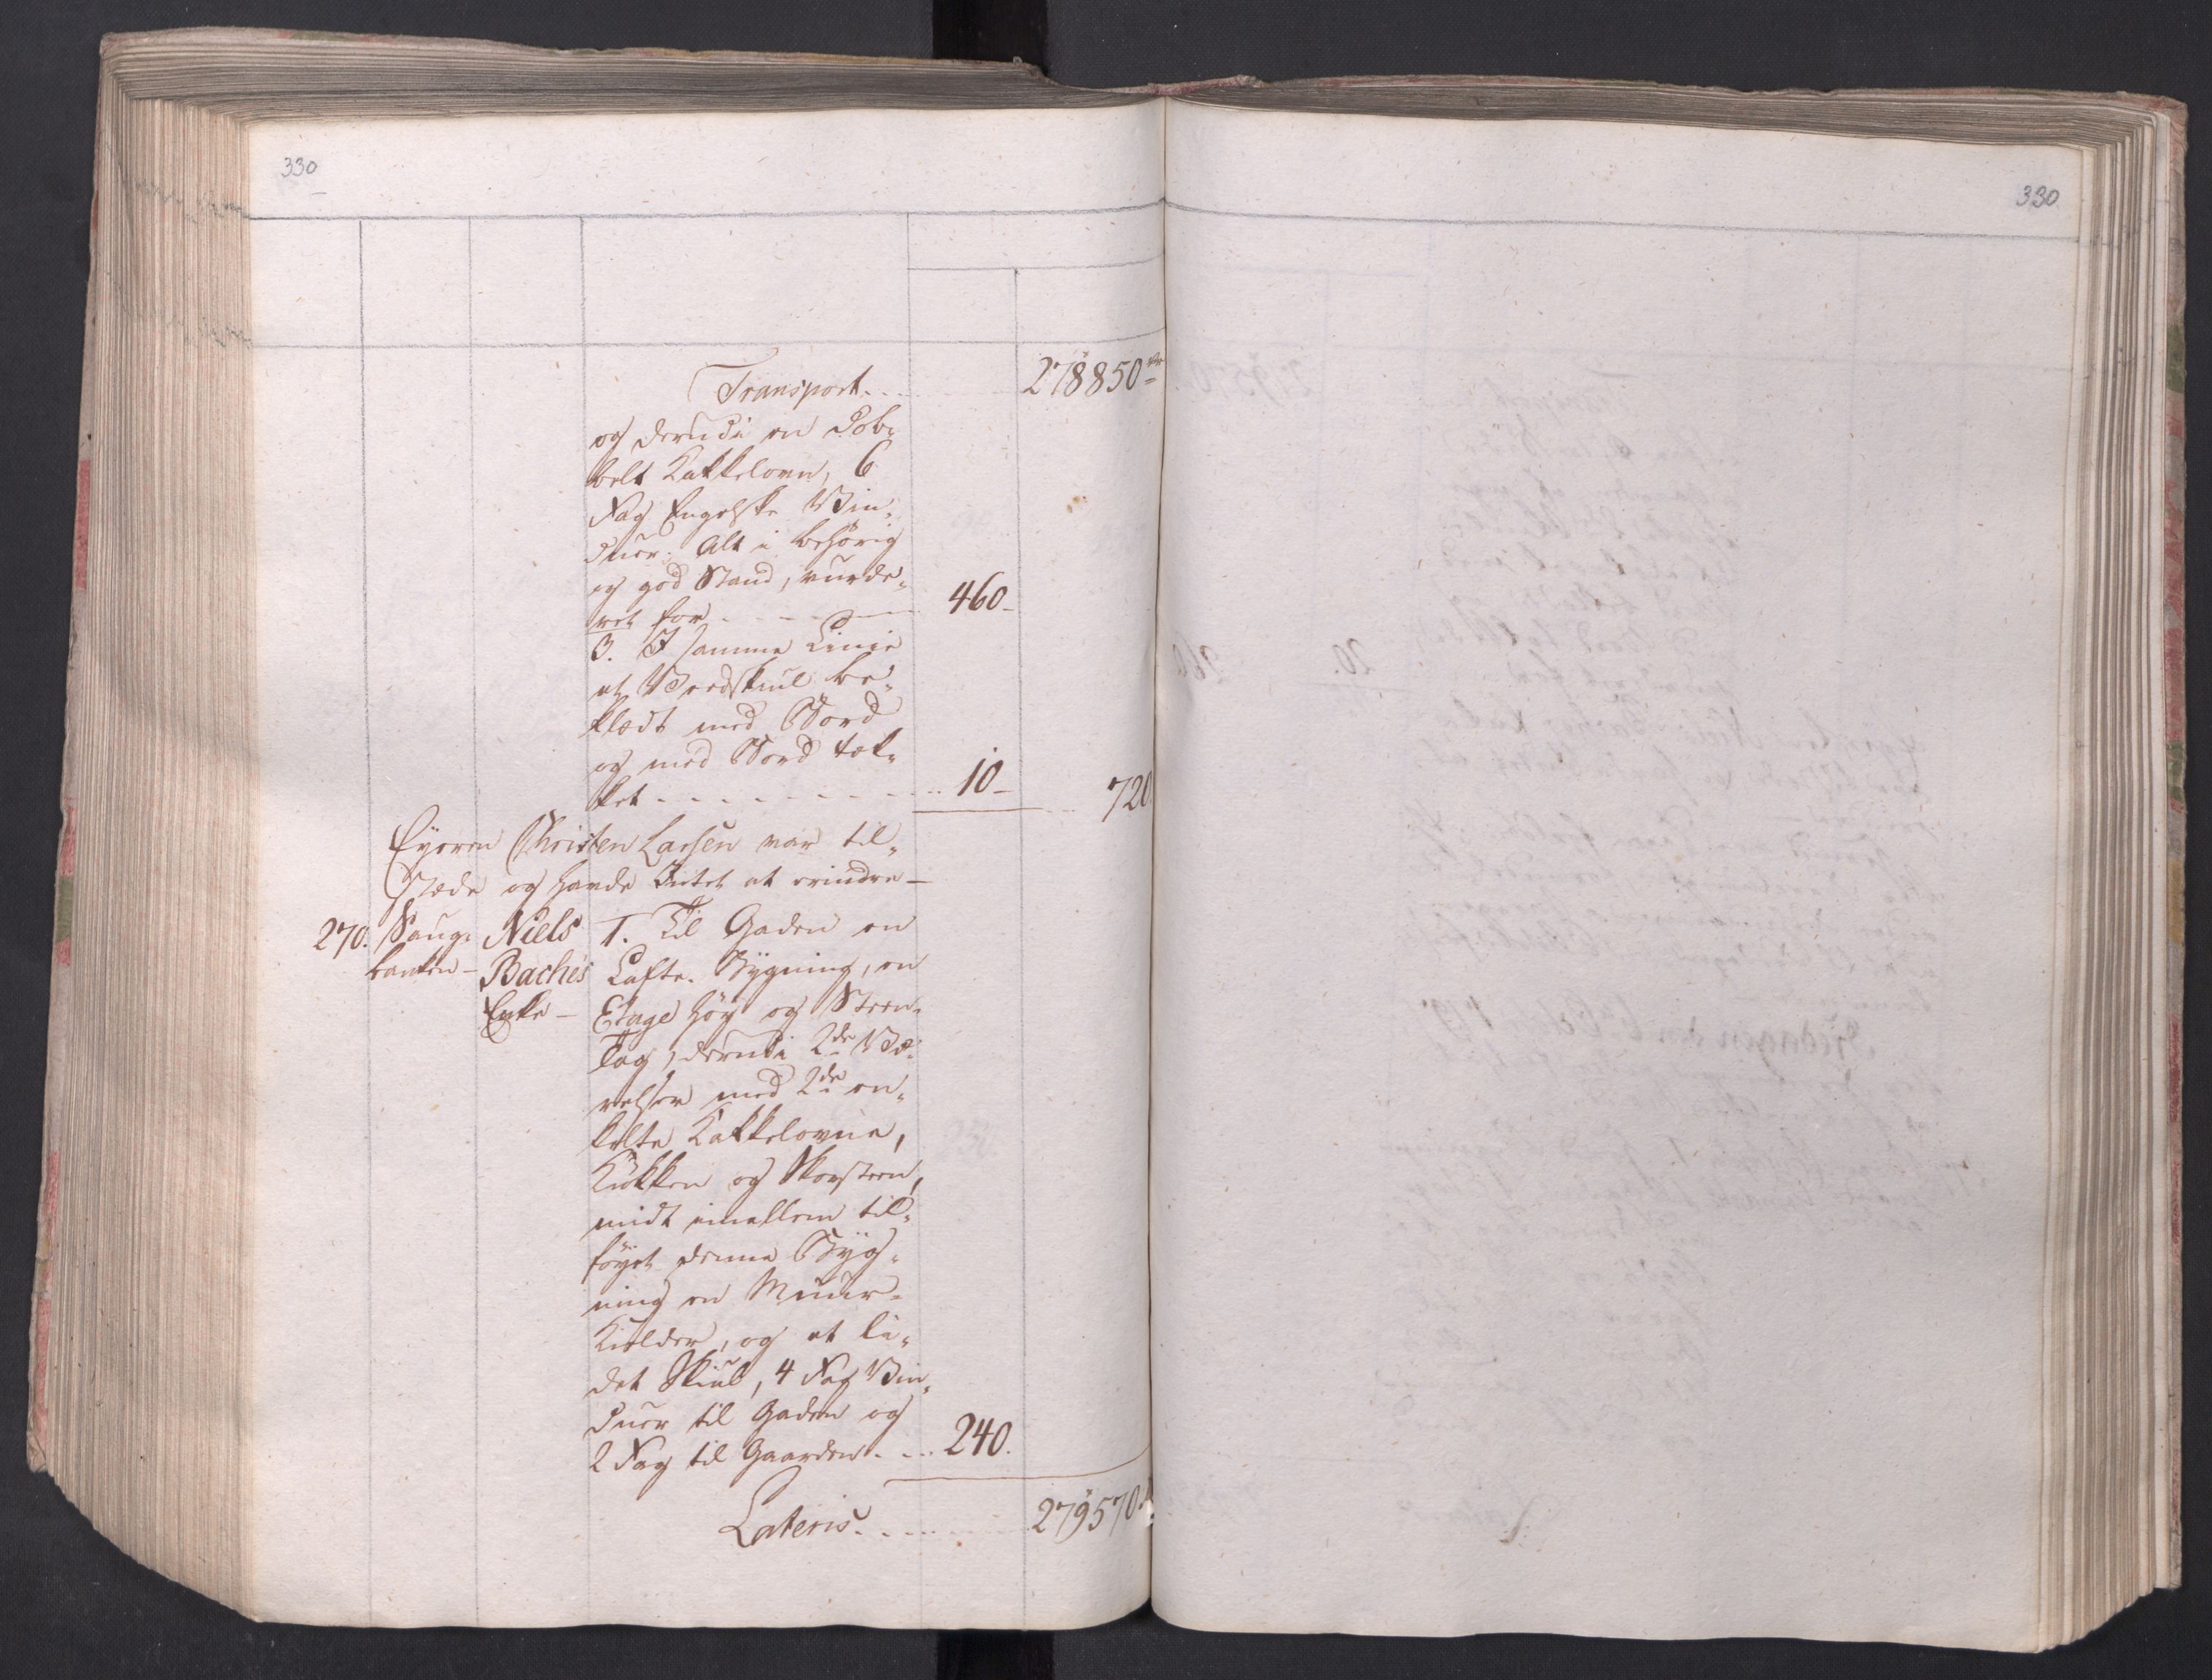 330
330
Transport . . . 278850 rdr
og derudi en Dob-
belt Kakkelovn, 6
Fag Engelske Vin-
duer. Alt i behörig
og god Stand, vurde-
ret for - - - - - 460 -
3. I samme Linie
et Vedskiul be-
klædt med Bord
og med Bord tæk-
ket - - - - - - - - 10 - . . 720.
Eyeren Christen Larsen var til-
stæde og havde Intet at erindre -
270. Saug- Niels 1. Til Gaden en
banken - Baches Lafte-Bygning, en
Enke - Etage höy og Steen-
Tag, derudi 2de Væ-
relser med 2de en-
kelte Kakkelovne,
Kiökken og Skorsteen,
midt imellem til-
föyet denne Byg-
ning en Muur-
Kielder, og et li-
det Skiul, 4 Fag Vin-
duer til Gaden og
2 Fag til Gaarden. - . . 240.
Lateris . . . . . 279570
Fredagen den